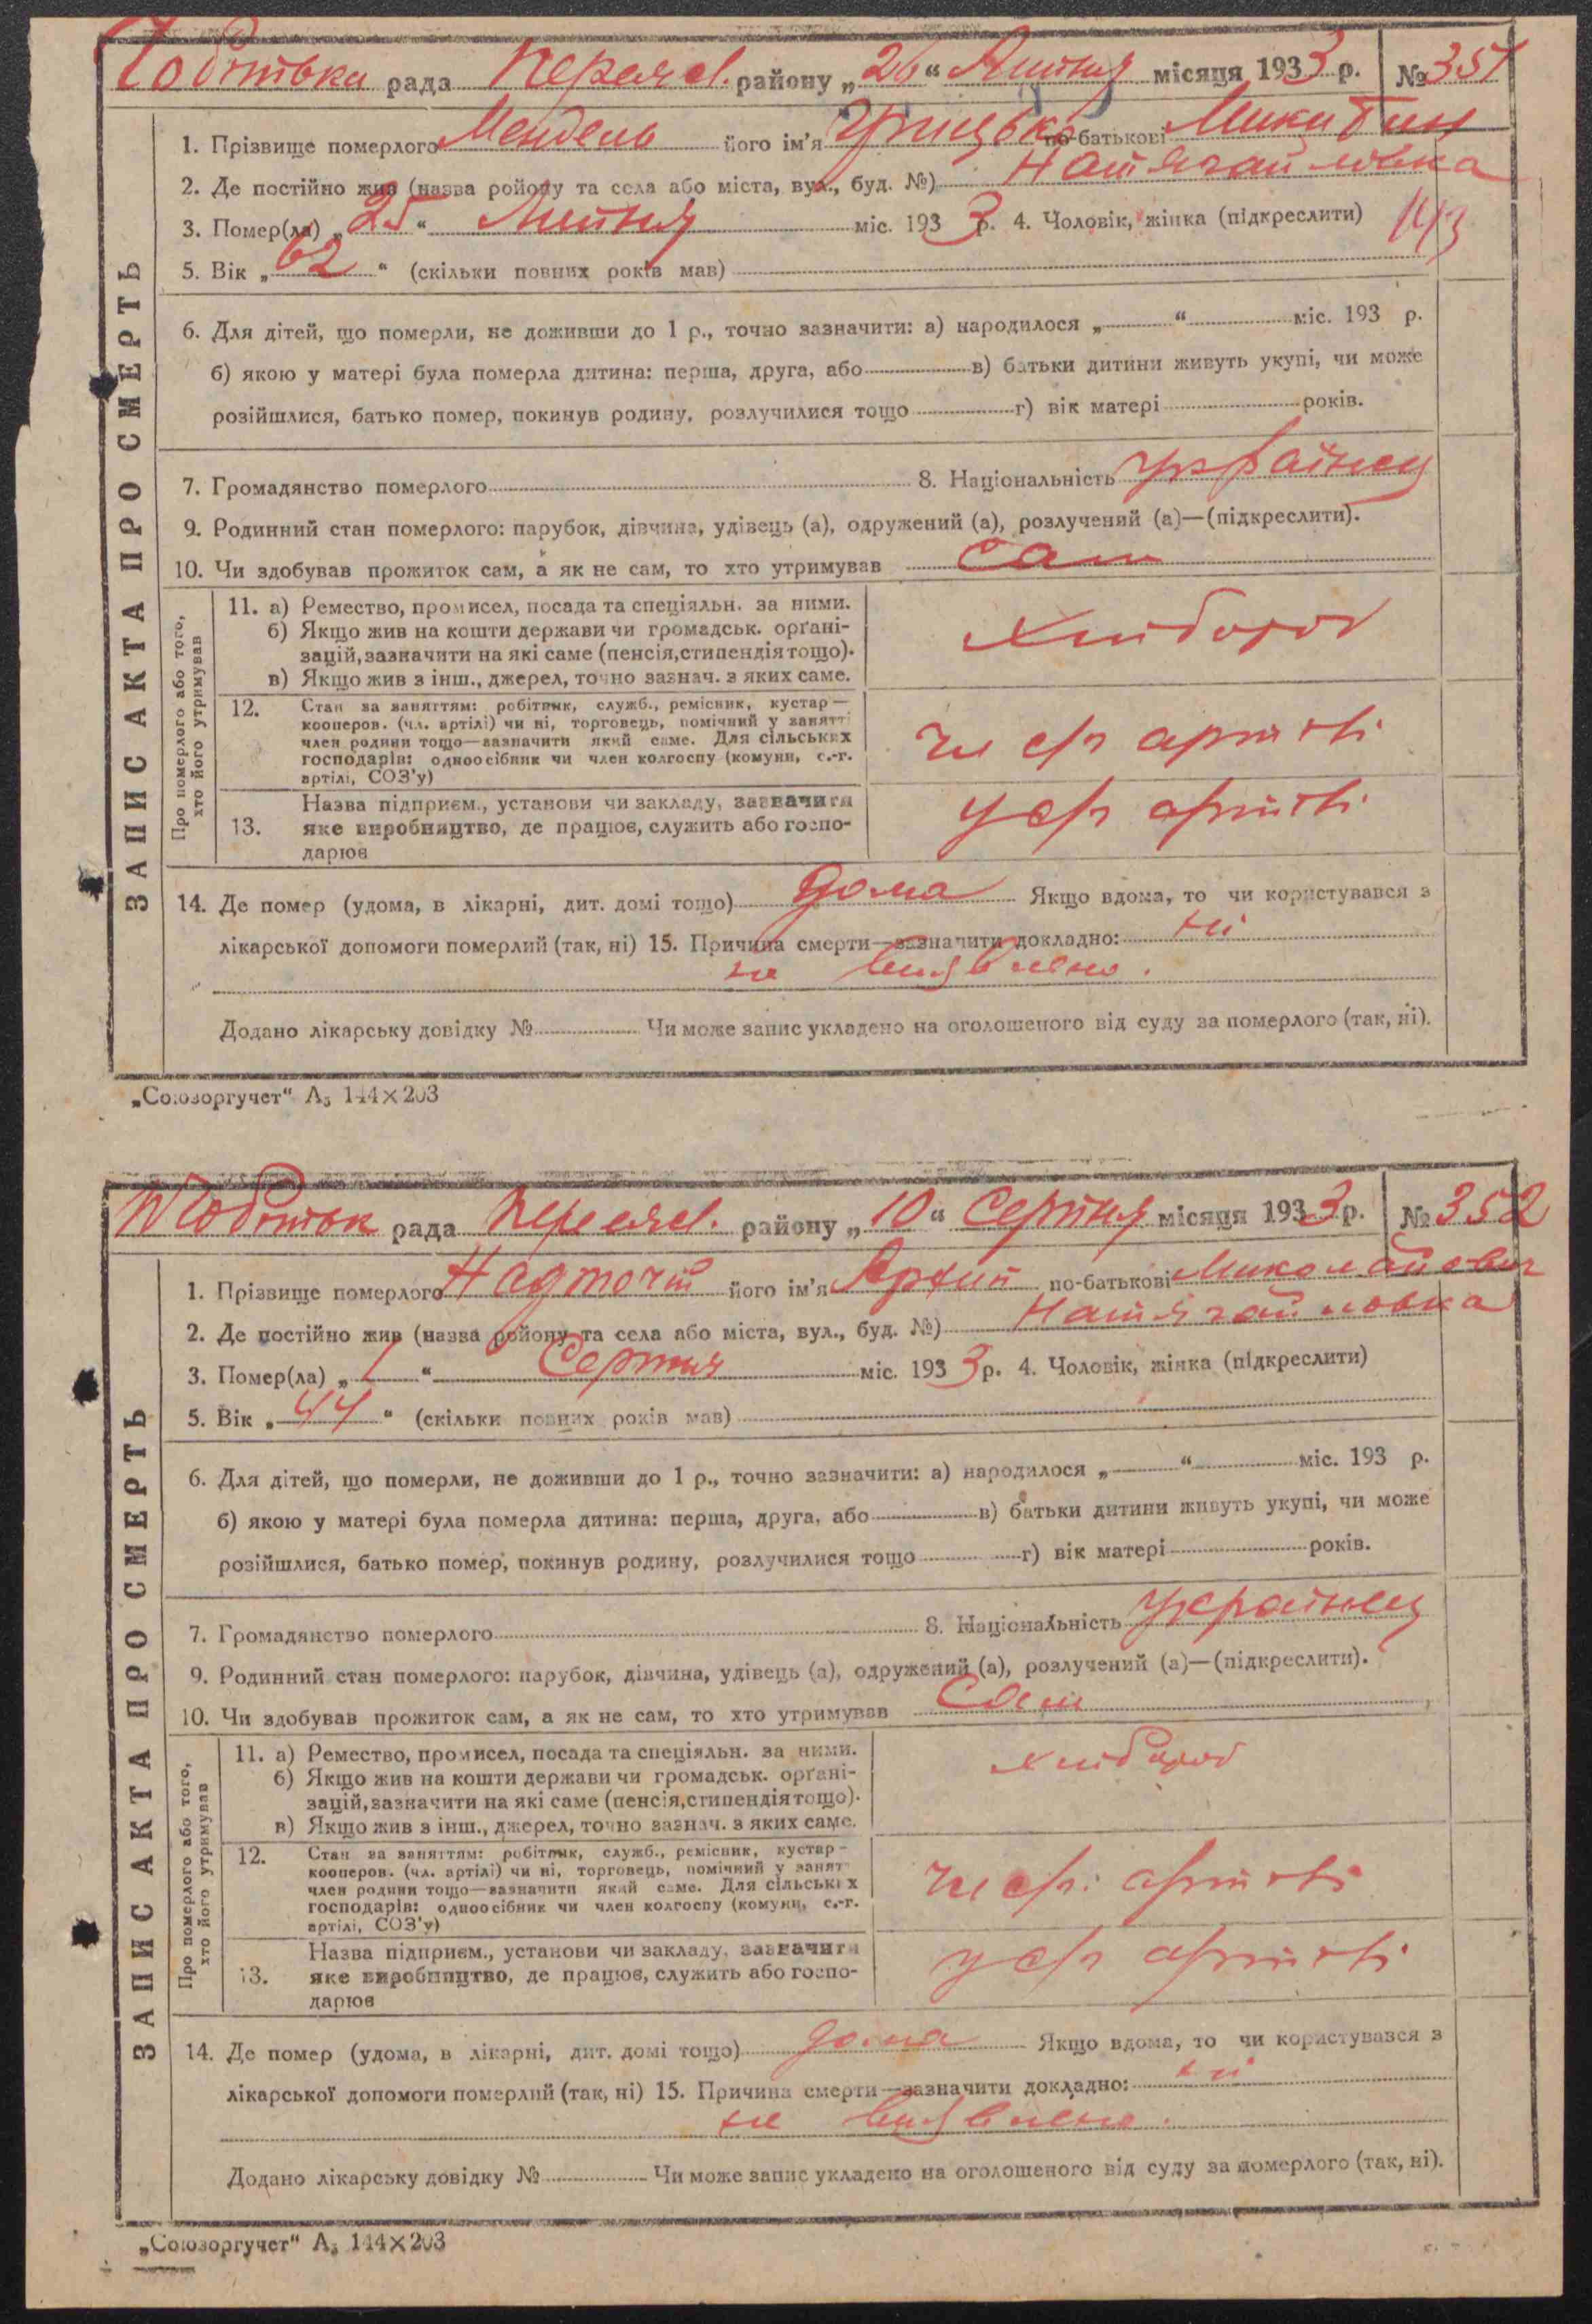 рада Переясл. району „26“ Липня місяця 1933 р. № 351
ЗАПИС АКТА ПРО СМЕРТЬ
1. Прізвище померлого Мендель його ім'я Грицько по-батькові Микитин
2. Де постійно жив (назва ройону та села або міста, вул., буд. №) Натягайловка
3. Помер(ла) „25“ Липня міс. 1933 р. 4. Чоловік, жінка (підкреслити) 143
5. Вік „62“ (скільки повних років мав)
6. Для дітей, що померли, не доживши до 1 р., точно зазначити: а) народилося „ “ міс. 193 р.
б) якою у матері була померла дитина: перша, друга, або в) батьки дитини живуть укупі, чи може
розійшлися, батько помер, покинув родину, розлучилися тощо г) вік матері років.
7. Громадянство померлого 8. Національність українец
9. Родинний стан померлого: парубок, дівчина, удівець (а), одружений (а), розлучений (а)—(підкреслити).
10. Чи здобував прожиток сам, а як не сам, то хто утримував сам
Про померлого або того,
хто його утримував
11. а) Ремество, промисел, посада та спеціяльн. за ними.
б) Якщо жив на кошти держави чи громадськ. орґані-
зацій, зазначити на які саме (пенсія, стипендія тощо).
в) Якщо жив з інш., джерел, точно зазнач. з яких саме.
хлібороб
12. Стан за заняттям: робітник, служб., ремісник, кустар—
кооперов. (чл. артілі) чи ні, торговець, помічний у занятті
член родини тощо—зазначити який саме. Для сільських
господарів: одноосібник чи член колгоспу (комуни, с.-г.
артілі, СОЗ'у)
чл с/г артілі
13. Назва підприєм., установи чи закладу, зазначити
яке виробництво, де працює, служить або госпо-
дарює
у с/г артілі
14. Де помер (удома, в лікарні, дит. домі тощо) дома Якщо вдома, то чи користувався з
лікарської допомоги померлий (так, ні) 15. Причина смерти—зазначити докладно: ні
не виявлено.
Додано лікарську довідку № Чи може запис укладено на оголошеного від суду за померлого (так, ні).
„Союзоргучет“ А₅ 144×203
рада Переясл. району „10“ Серпня місяця 1933 р. № 352
ЗАПИС АКТА ПРО СМЕРТЬ
1. Прізвище померлого Надточій його ім'я Архип по-батькові Миколайович
2. Де постійно жив (назва ройону та села або міста, вул., буд. №) Натягайловка
3. Помер(ла) „1“ Серпня міс. 1933 р. 4. Чоловік, жінка (підкреслити)
5. Вік „44“ (скільки повних років мав)
6. Для дітей, що померли, не доживши до 1 р., точно зазначити: а) народилося „ “ міс. 193 р.
б) якою у матері була померла дитина: перша, друга, або в) батьки дитини живуть укупі, чи може
розійшлися, батько помер, покинув родину, розлучилися тощо г) вік матері років.
7. Громадянство померлого 8. Національність українец
9. Родинний стан померлого: парубок, дівчина, удівець (а), одружений (а), розлучений (а)—(підкреслити).
10. Чи здобував прожиток сам, а як не сам, то хто утримував Сам
Про померлого або того,
хто його утримував
11. а) Ремество, промисел, посада та спеціяльн. за ними.
б) Якщо жив на кошти держави чи громадськ. орґані-
зацій, зазначити на які саме (пенсія, стипендія тощо).
в) Якщо жив з інш., джерел, точно зазнач. з яких саме.
хлібороб
12. Стан за заняттям: робітник, служб., ремісник, кустар—
кооперов. (чл. артілі) чи ні, торговець, помічний у занят
член родини тощо—зазначити який саме. Для сільських
господарів: одноосібник чи член колгоспу (комуни, с.-г.
артілі, СОЗ'у)
чл с/г. артілі
13. Назва підприєм., установи чи закладу, зазначити
яке виробництво, де працює, служить або госпо-
дарює
у с/г артілі
14. Де помер (удома, в лікарні, дит. домі тощо) дома Якщо вдома, то чи користувався з
лікарської допомоги померлий (так, ні) 15. Причина смерти—зазначити докладно: ні
не виявлено.
Додано лікарську довідку № Чи може запис укладено на оголошеного від суду за померлого (так, ні).
„Союзоргучет“ А₅ 144×203